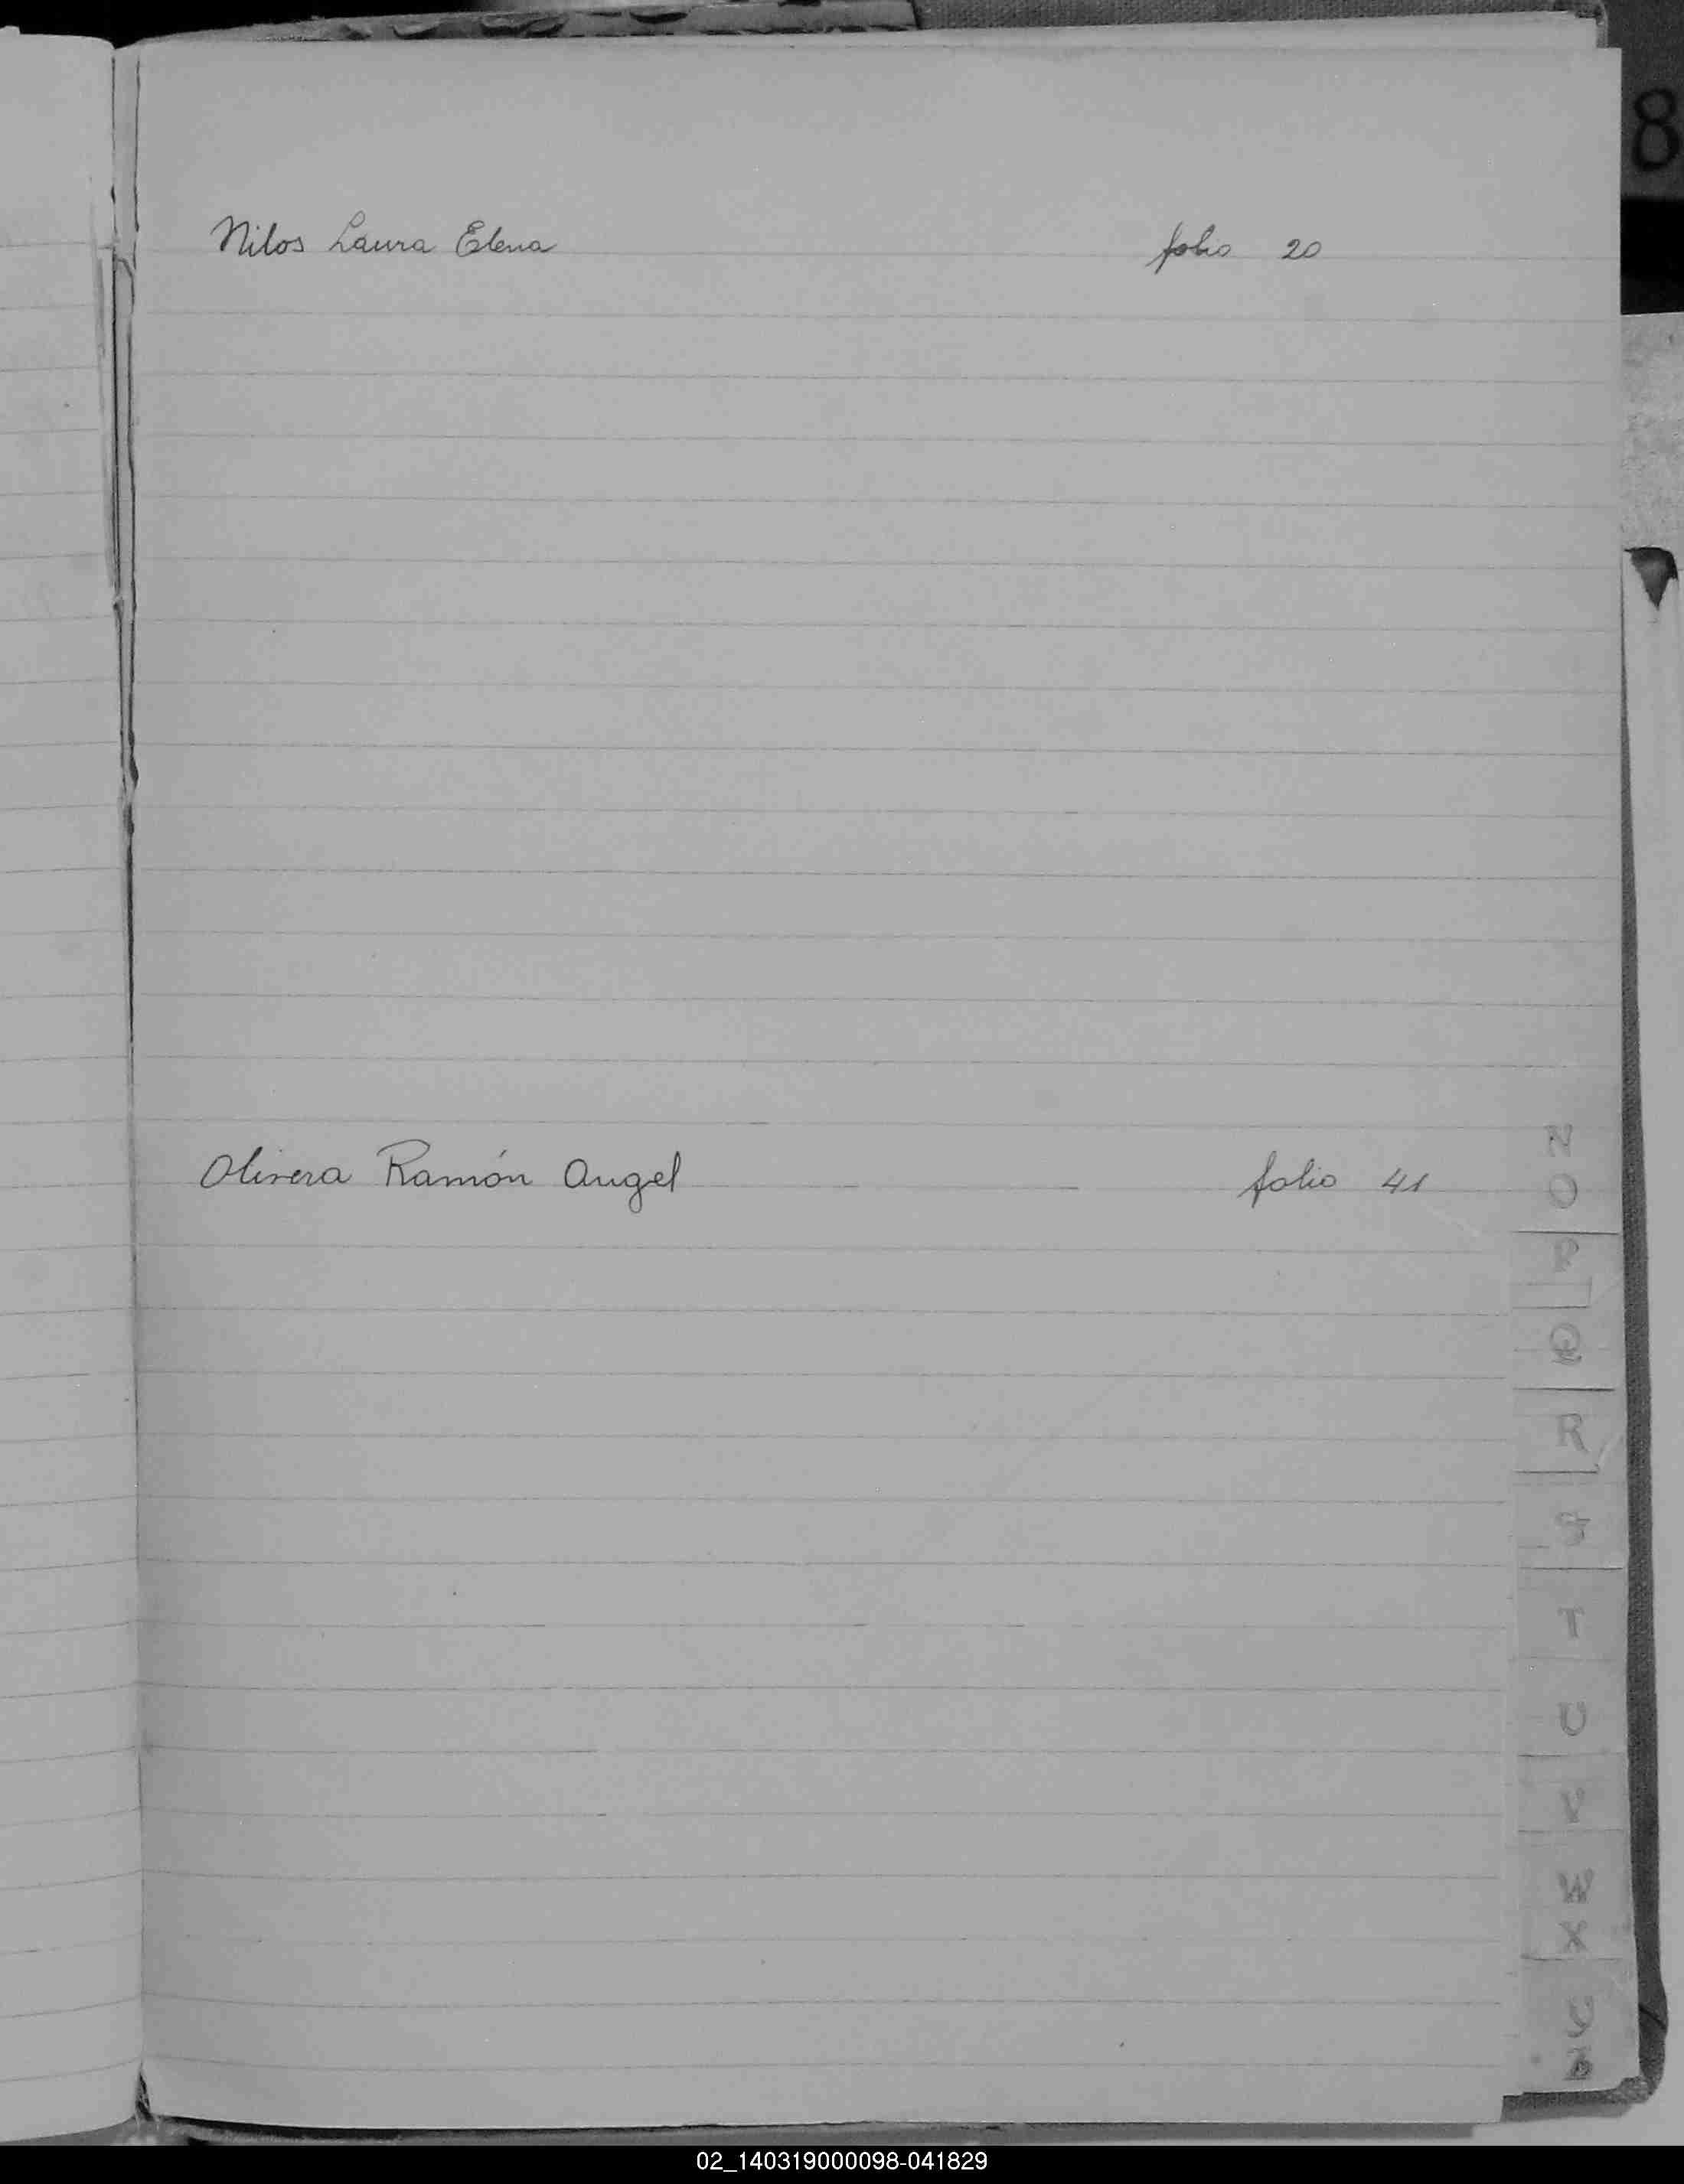 8
Nilos Laura Elena folio 20
Olivera Ramón Angel folio 41
N
O
P
Q
R
S
T
U
V
W
X
02_140319000098-041829